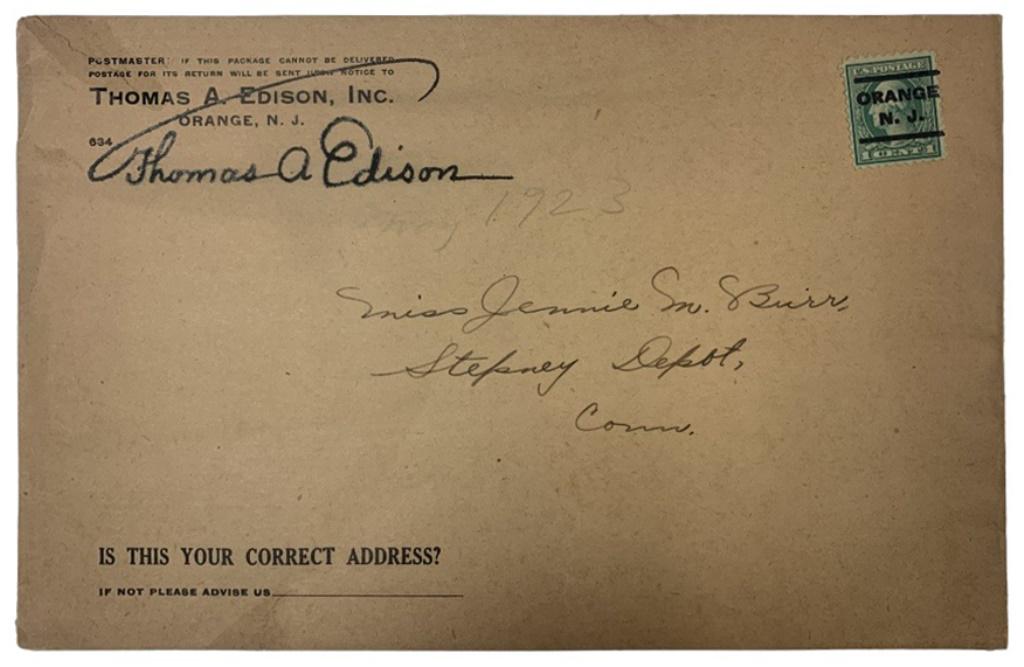 POSTMASTER: IF THIS PACKAGE CANNOT BE DELIVERED
POSTAGE FOR ITS RETURN WILL BE SENT UPON NOTICE TO
THOMAS A. EDISON, INC.
ORANGE, N. J.
634
Thomas A Edison
U.S. POSTAGE
ORANGE
N. J.
1923
Miss Jennie M. Burr,
Stepney Depot,
Conn.
IS THIS YOUR CORRECT ADDRESS?
IF NOT PLEASE ADVISE US